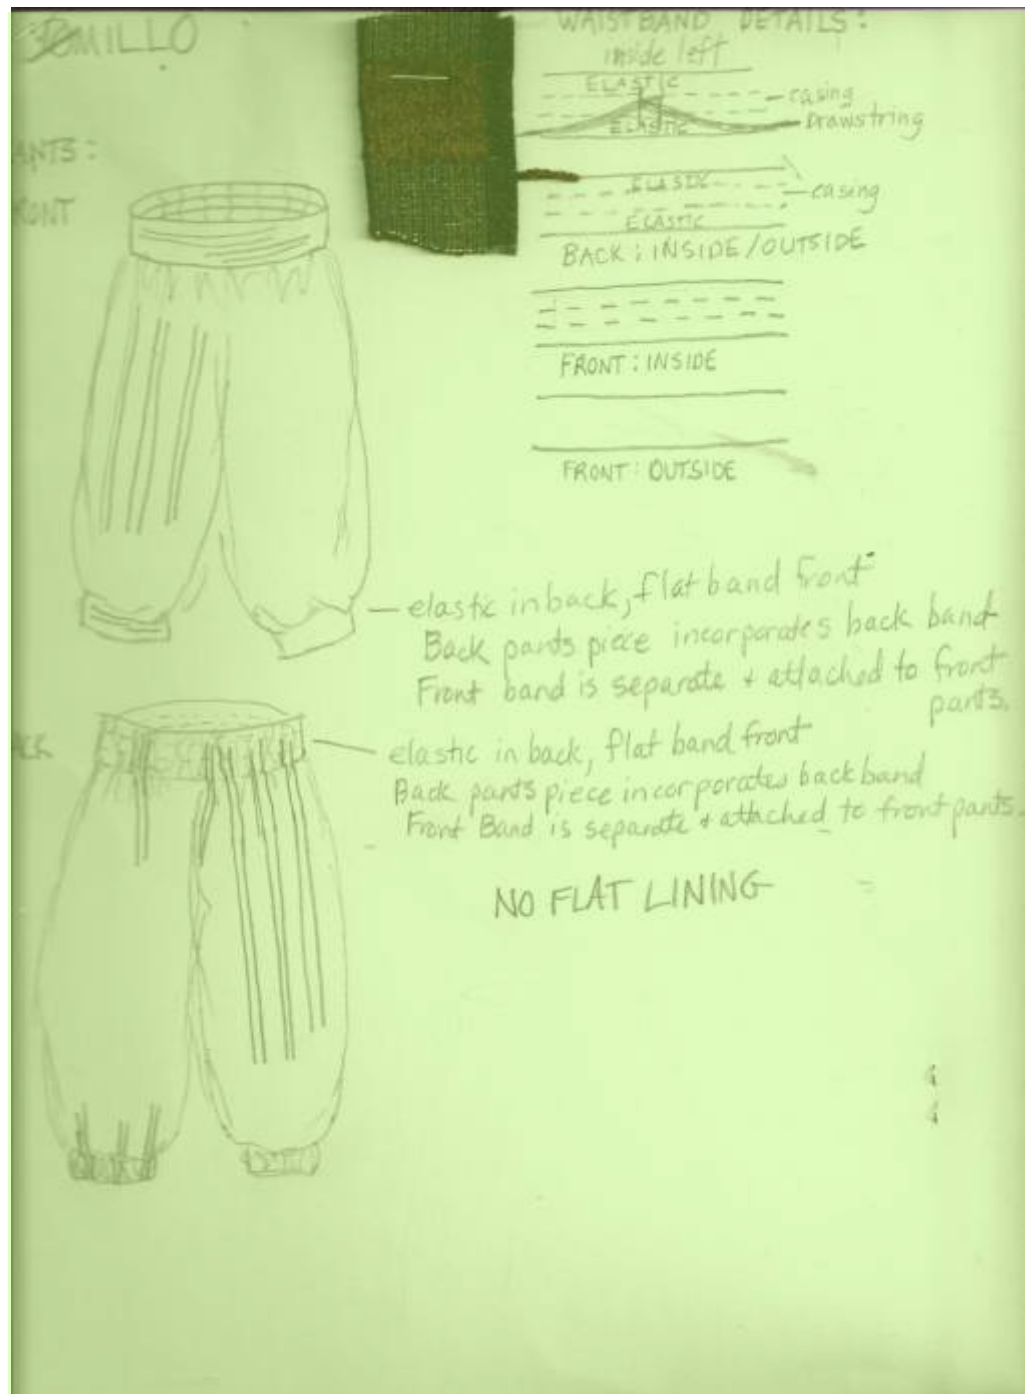 ANTS:
RONT
WAISTBAND DETAILS:
inside left
ELASTIC
casing
Drawstring
ELASTIC
ELASTIC
casing
ELASTIC
BACK: INSIDE/OUTSIDE
FRONT: INSIDE
FRONT: OUTSIDE
elastic in back, flat band front
Back pants piece incorporates back band
Front band is separate + attached to front
pants.
ACK
elastic in back, flat band front
Back pants piece incorporates back band
Front Band is separate + attached to front pants.
NO FLAT LINING